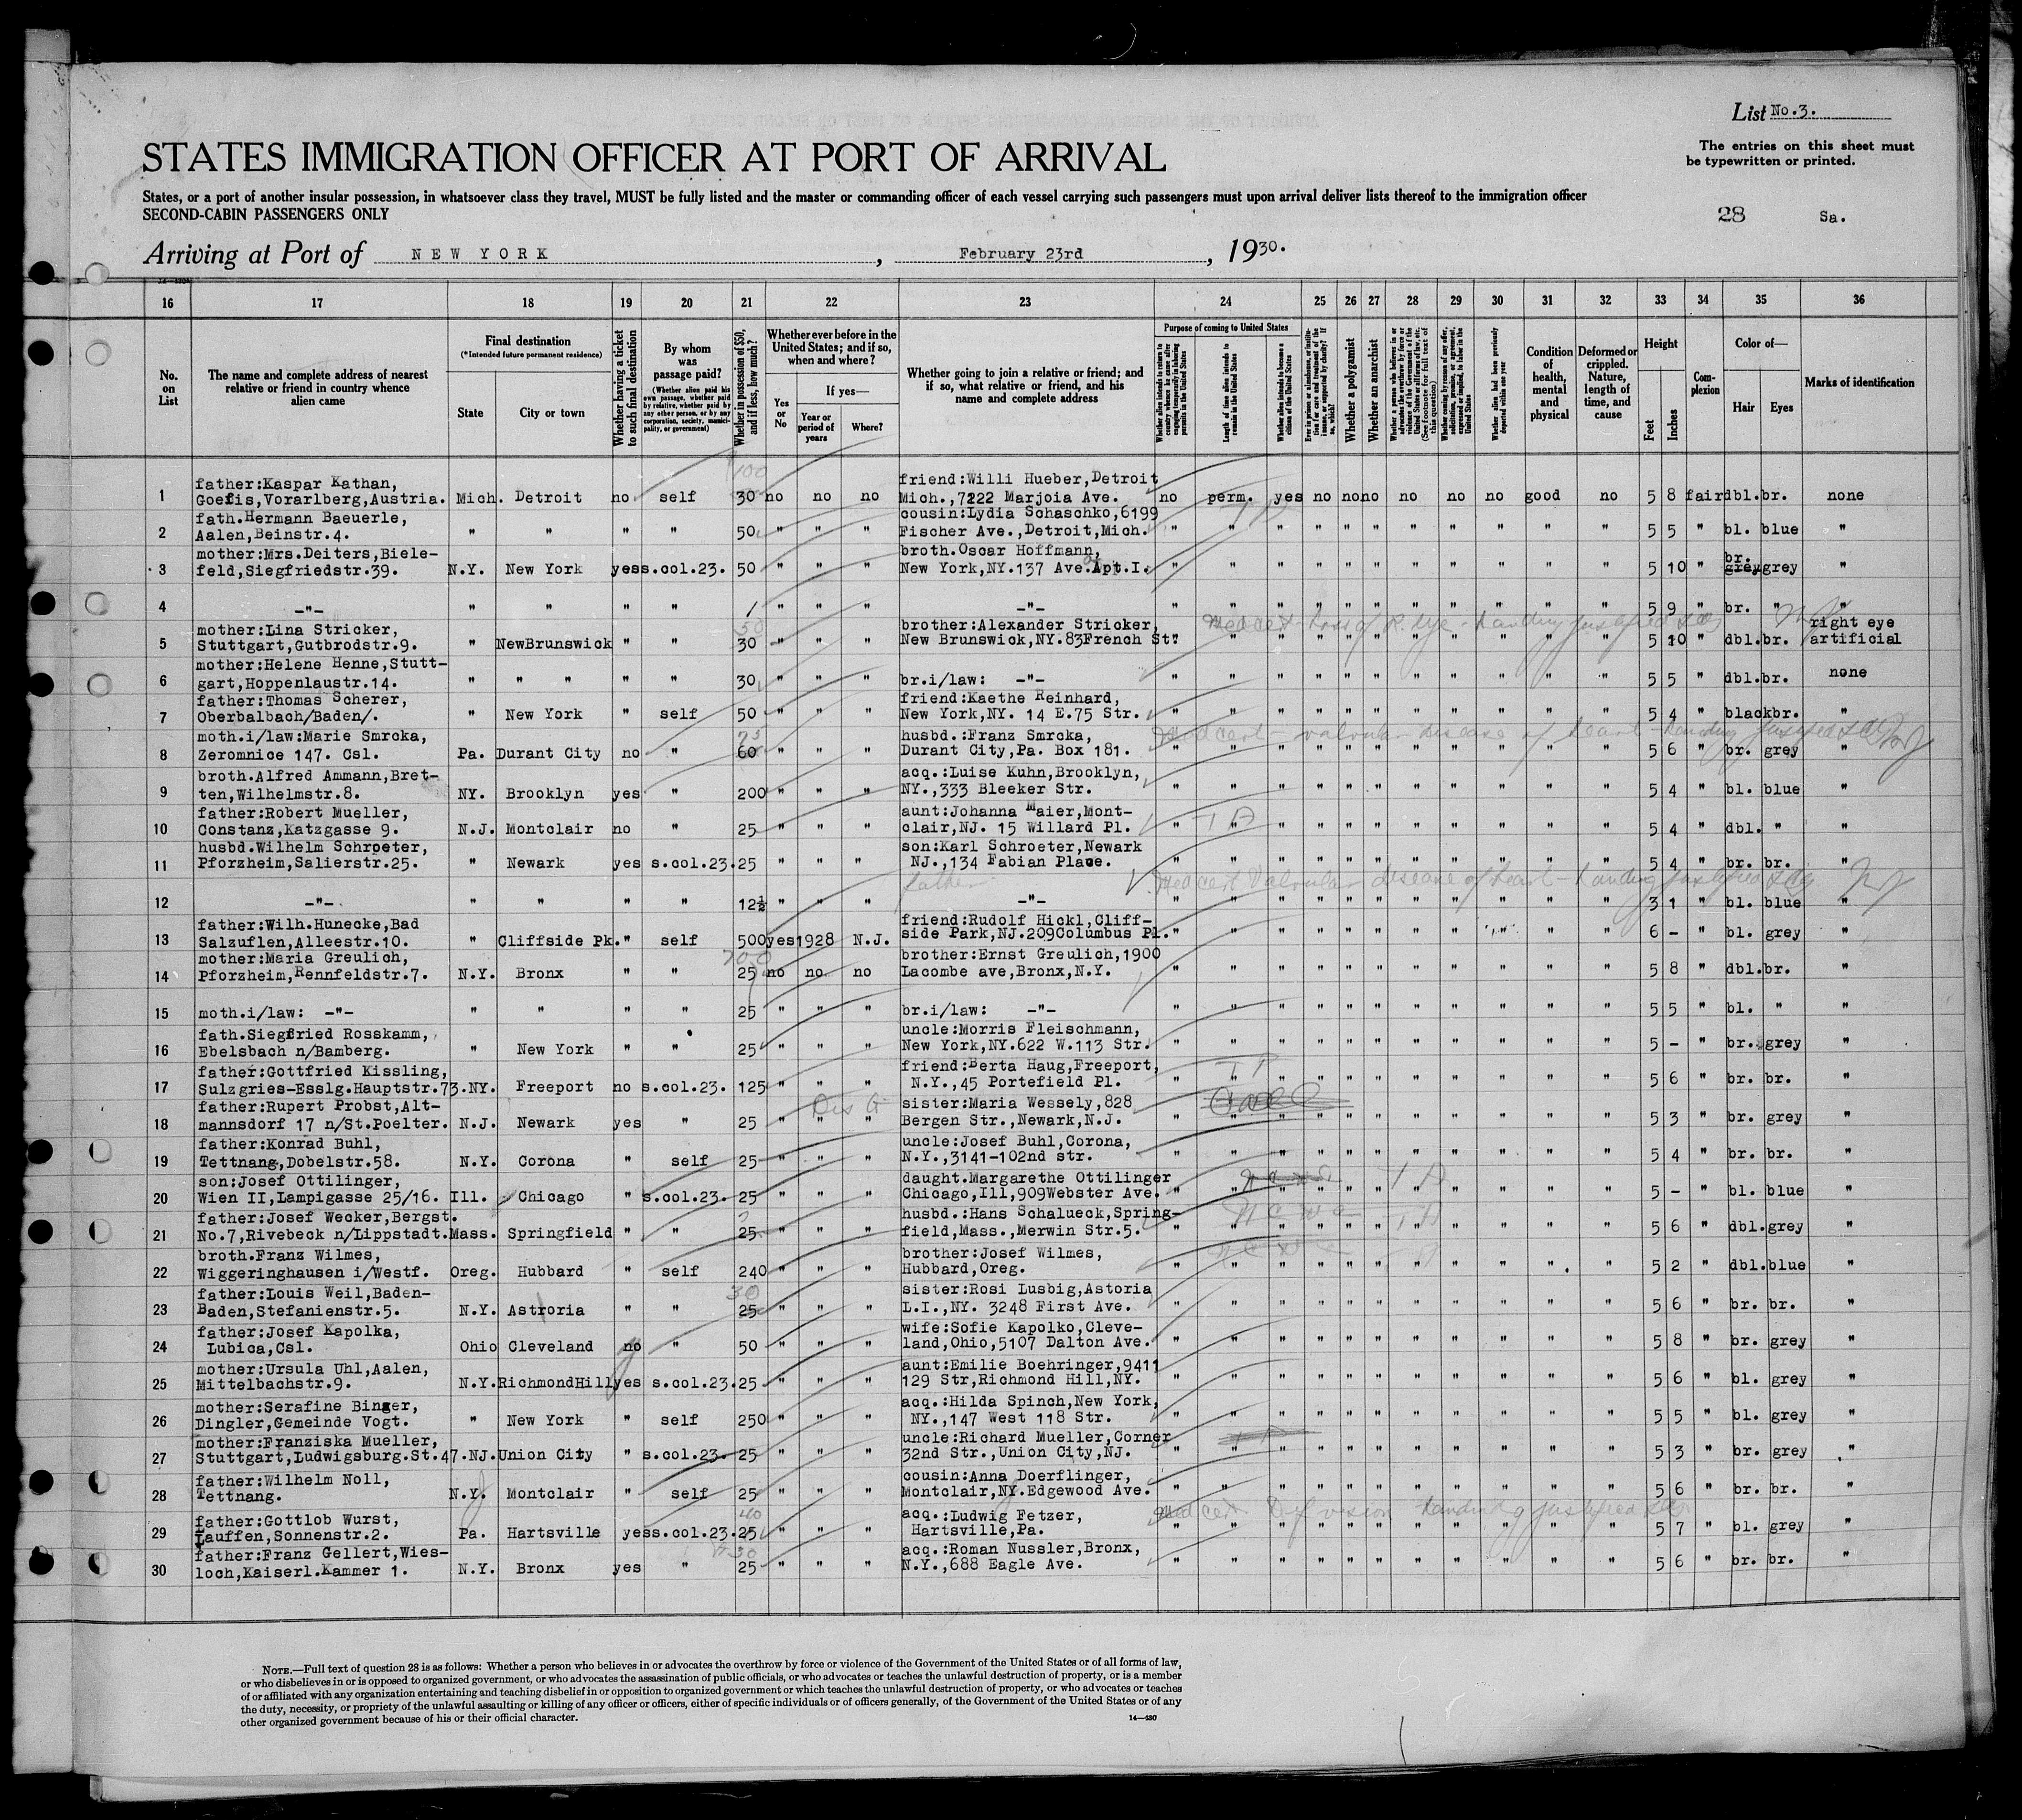 List No.3.
STATES IMMIGRATION OFFICER AT PORT OF ARRIVAL
The entries on this sheet must
be typewritten or printed.
States, or a port of another insular possession, in whatsoever class they travel, MUST be fully listed and the master or commanding officer of each vessel carrying such passengers must upon arrival deliver lists thereof to the immigration officer
SECOND-CABIN PASSENGERS ONLY
28 Sa.
Arriving at Port of NEW YORK, February 23rd, 1930.
16 17 18 19 20 21 22 23 24 25 26 27 28 29 30 31 32 33 34 35 36
No. on List
The name and complete address of nearest relative or friend in country whence alien came
Final destination
(*Intended future permanent residence)
State
City or town
Whether having a ticket to such final destination
By whom was passage paid?
(Whether alien paid his own passage, whether paid by relative, whether paid by any other person, or by any corporation, society, municipality, or government)
Whether in possession of $50, and if less, how much?
Whether ever before in the United States; and if so, when and where?
Yes or No
If yes—
Year or period of years
Where?
Whether going to join a relative or friend; and if so, what relative or friend, and his name and complete address
Purpose of coming to United States
Whether alien intends to return to country whence he came after engaging temporarily in laboring pursuits in the United States
Length of time alien intends to remain in the United States
Whether alien intends to become a citizen of the United States
Whether a polygamist
Whether an anarchist
Whether alien had been previously deported within one year
Condition of health, mental and physical
Deformed or crippled. Nature, length of time, and cause
Height
Feet
Inches
Complexion
Color of—
Hair
Eyes
Marks of identification
father:Kaspar Kathan, friend:Willi Hueber,Detroit
1 Goefis,Vorarlberg,Austria. Mich. Detroit no self 30 no no no Mich.,7222 Marjoia Ave. no perm. yes no no no no no no good no 5 8 fair dbl. br. none
fath.Hermann Baeuerle, cousin:Lydia Schaschko,6199
2 Aalen,Beinstr.4. " " " " 50 " " " Fischer Ave.,Detroit,Mich. " " " " " " " " " " " 5 5 " bl. blue "
mother:Mrs.Deiters,Biele- broth.Oscar Hoffmann, br.
3 feld,Siegfriedstr.39. N.Y. New York yes s.col.23. 50 " " " New York,NY.137 Ave.Apt.I. " " " " " " " " " " " 5 10 " grey grey "
4 -"- " " " " " " " -"- " " " " " " " " " " " 5 9 " br. " "
mother:Lina Stricker, brother:Alexander Stricker, right eye
5 Stuttgart,Gutbrodstr.9. " NewBrunswick " " 30 " " " New Brunswick,NY.83French St. " " " " " " " " " " " 5 10 " dbl. br. artificial
mother:Helene Henne,Stutt-
6 gart,Hoppenlaustr.14. " " " " " 30 " " " br.i/law: -"- " " " " " " " " " " " 5 5 " dbl. br. none
father:Thomas Scherer, friend:Kaethe Reinhard,
7 Oberbalbach/Baden/. " New York " self 50 " " " New York,NY. 14 E.75 Str. " " " " " " " " " " " 5 4 " black br. "
moth.i/law:Marie Smrcka, husbd.:Franz Smrcka,
8 Zeromnice 147. Csl. Pa. Durant City no " 60 " " " Durant City,Pa. Box 181. " " " " " " " " " " " 5 6 " br. grey "
broth.Alfred Ammann,Bret- acq.:Luise Kuhn,Brooklyn,
9 ten,Wilhelmstr.8. NY. Brooklyn yes " 200 " " " NY.,333 Bleeker Str. " " " " " " " " " " " 5 4 " bl. blue "
father:Robert Mueller, aunt:Johanna Maier,Mont-
10 Constanz,Katzgasse 9. N.J. Montclair no " 25 " " " clair,NJ. 15 Willard Pl. " " " " " " " " " " " 5 4 " dbl. " "
husbd.Wilhelm Schroeter, son:Karl Schroeter,Newark
11 Pforzheim,Salierstr.25. " Newark yes s.col.23. 25 " " " NJ.,134 Fabian Place. " " " " " " " " " " " 5 4 " br. br. "
father
12 -"- " " " " 12½ " " " -"- " " " " " " " " " " " 3 1 " bl. blue "
father:Wilh.Hunecke,Bad friend:Rudolf Hickl,Cliff-
13 Salzuflen,Alleestr.10. " Cliffside Pk. " self 500 yes 1928 N.J. side Park,NJ.209Columbus Pl. " " " " " " " " " " " 6 - " bl. grey "
mother:Maria Greulich, brother:Ernst Greulich,1900
14 Pforzheim,Rennfeldstr.7. N.Y. Bronx " " 25 no no. no Lacombe ave,Bronx,N.Y. " " " " " " " " " " " 5 8 " dbl. br. "
15 moth.i/law: -"- " " " " 25 " " " br.i/law: -"- " " " " " " " " " " " 5 5 " bl. " "
fath.Siegfried Rosskamm, uncle:Morris Fleischmann,
16 Ebelsbach n/Bamberg. " New York " " 25 " " " New York,NY.622 W.113 Str. " " " " " " " " " " " 5 - " br. grey "
father:Gottfried Kissling, friend:Berta Haug,Freeport,
17 Sulzgries-Esslg.Hauptstr.73.NY. Freeport no s.col.23. 125 " " " N.Y.,45 Portefield Pl. " " " " " " " " " " " 5 6 " br. br. "
father:Rupert Probst,Alt- sister:Maria Wessely,828
18 mannsdorf 17 n/St.Poelter. N.J. Newark yes " 25 " " " Bergen Str.,Newark,N.J. " " " " " " " " " " " 5 3 " br. grey "
father:Konrad Buhl, uncle:Josef Buhl,Corona,
19 Tettnang,Dobelstr.58. N.Y. Corona " self 25 " " " N.Y.,3141-102nd str. " " " " " " " " " " " 5 4 " br. br. "
son:Josef Ottilinger, daught.Margarethe Ottilinger
20 Wien II,Lampigasse 25/16. Ill. Chicago " s.col.23. 25 " " " Chicago,Ill,909Webster Ave. " " " " " " " " " " " 5 - " bl. blue "
father:Josef Wecker,Bergst. husbd.:Hans Schalueck,Spring-
21 No.7,Rivebeck n/Lippstadt.Mass. Springfield " " 25 " " " field,Mass.,Merwin Str.5. " " " " " " " " " " " 5 6 " dbl. grey "
broth.Franz Wilmes, brother:Josef Wilmes,
22 Wiggeringhausen i/Westf. Oreg. Hubbard " self 240 " " " Hubbard,Oreg. " " " " " " " " " " " 5 2 " dbl. blue "
father:Louis Weil,Baden- sister:Rosi Lusbig,Astoria
23 Baden,Stefanienstr.5. N.Y. Astroria " " 25 " " " L.I.,NY. 3248 First Ave. " " " " " " " " " " " 5 6 " br. br. "
father:Josef Kapolka, wife:Sofie Kapolko,Cleve-
24 Lubica,Csl. Ohio Cleveland no " 50 " " " land,Ohio,5107 Dalton Ave. " " " " " " " " " " " 5 8 " br. grey "
mother:Ursula Uhl,Aalen, aunt:Emilie Boehringer,9411
25 Mittelbachstr.9. N.Y. RichmondHill yes s.col.23. 25 " " " 129 Str,Richmond Hill,NY. " " " " " " " " " " " 5 6 " bl. grey "
mother:Serafine Binger, acq.:Hilda Spinch,New York,
26 Dingler,Gemeinde Vogt. " New York " self 250 " " " NY.,147 West 118 Str. " " " " " " " " " " " 5 5 " bl. grey "
mother:Franziska Mueller, uncle:Richard Mueller,Corner
27 Stuttgart,Ludwigsburg.St.47.NJ. Union City " s.col.23. 25 " " " 32nd Str.,Union City,NJ. " " " " " " " " " " " 5 3 " br. grey "
father:Wilhelm Noll, cousin:Anna Doerflinger,
28 Tettnang. N.Y. Montclair " self 25 " " " Montclair,NY.Edgewood Ave. " " " " " " " " " " " 5 6 " br. br. "
father:Gottlob Wurst, acq.:Ludwig Fetzer,
29 Lauffen,Sonnenstr.2. Pa. Hartsville yes s.col.23. 25 " " " Hartsville,Pa. " " " " " " " " " " " 5 7 " bl. grey "
father:Franz Gellert,Wies- acq.:Roman Nussler,Bronx,
30 loch,Kaiserl.Kammer 1. N.Y. Bronx yes " 25 " " " N.Y.,688 Eagle Ave. " " " " " " " " " " " 5 6 " br. br. "
NOTE.—Full text of question 28 is as follows: Whether a person who believes in or advocates the overthrow by force or violence of the Government of the United States or of all forms of law,
or who disbelieves in or is opposed to organized government, or who advocates the assassination of public officials, or who advocates or teaches the unlawful destruction of property, or is a member
of or affiliated with any organization entertaining and teaching disbelief in or opposition to organized government or which teaches the unlawful destruction of property, or who advocates or teaches
the duty, necessity, or propriety of the unlawful assaulting or killing of any officer or officers, either of specific individuals or of officers generally, of the Government of the United States or of any
other organized government because of his or their official character.
14—430